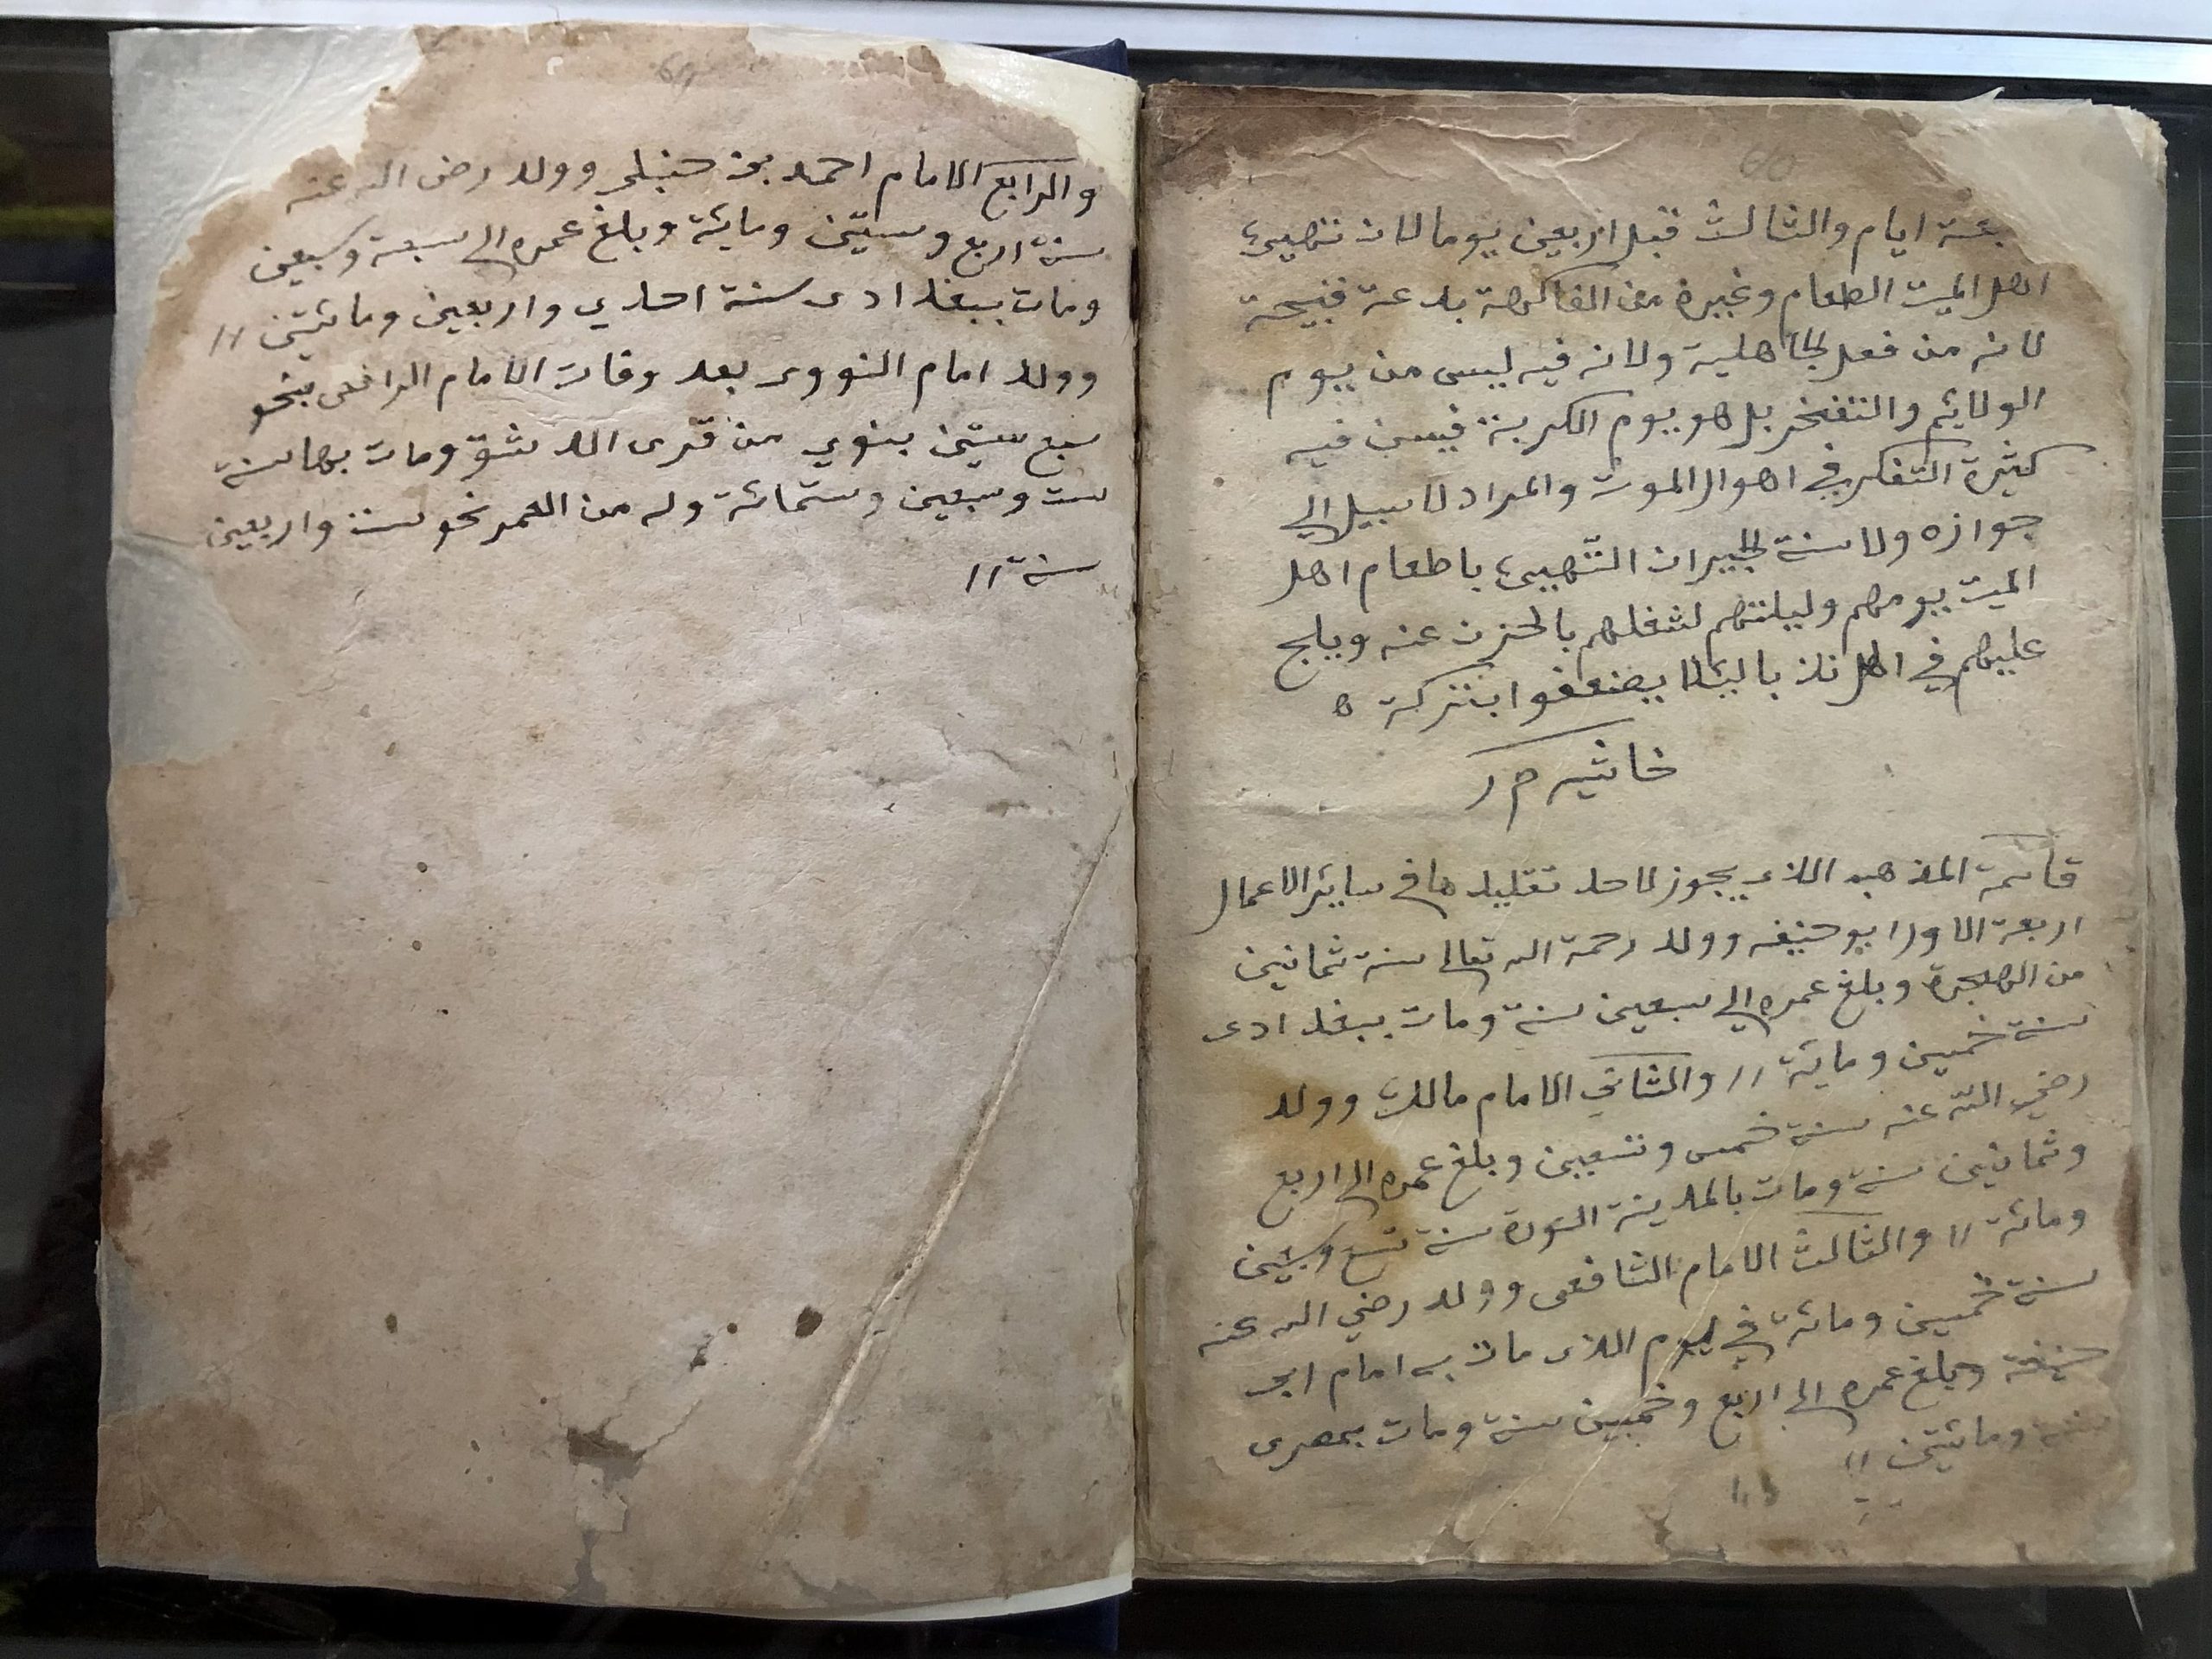 بعة ايام والثالث قبل اربعين يوما لان تنهيئ
اهل الميت الطعام وغيره من الفاكهة بدعة قبيحة
لانه من فعل لجاهلية ولانه فيه ليس من يوم
الولايم والتفخر بل هو يوم الكربة فيسن فيه
كثيرة التفكر في اهوال الموت والمراد لا سبيل الى
جوازه ولا سنة لجيران التهيئ باطعام اهل
الميت يومهم وليلتهم لشغلهم بالحزن عنه ويلح
عليهم في يضعفوا بتركه ه
خاشيه م ر
قاسمة المذهب الذى يجوز لاحد تقليدها فى ساير الاعمال
اربعة الاول ابو حنيفه وولد رحمة الله تعالى سنة ثمانين
من الهجرة وبلغ عمره الي سبعين سنة ومات ببغدادى
سنة خمسين وماية // والثاني الامام مالك وولد
رضي الله عنه سنة خمس وتسعين وبلغ عمره الى اربع
وثمانين سنة ومات بالمدينة سنة تسع وسبعين
ومائة // والثالث الامام الشافعى وولد رضي الله عنه
سنة خمسين ومائة في ليوم الذى مات به امام ابى
حنيفة وبلغ عمره الى اربع وخمسين سنة ومات بمصرى
سنة ومائيتن //
والرابع الامام احمد بن حنبلى وولد رضى الله عنه
سنة اربع وستين وماية وبلغ عمره الى سبعة وسبعين
ومات ببغدادى سنة احدي واربعين ومائيتن //
وولد امام النووى بعد وفات الامام الرافعى بنحو
سبع ستين بنوي من قرى الدمشق ومات بها سنة
ست وسبعين وستمائة وله من العمر نحو ست واربعين
سنة //